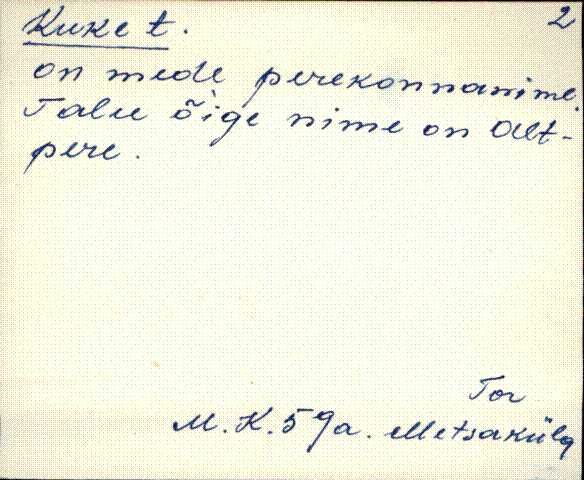 Kuket. 2
on mede perekonnanimi.
Talu õige nime on Alt-
pere.
Tor
M.K. 59a. Metsaküla